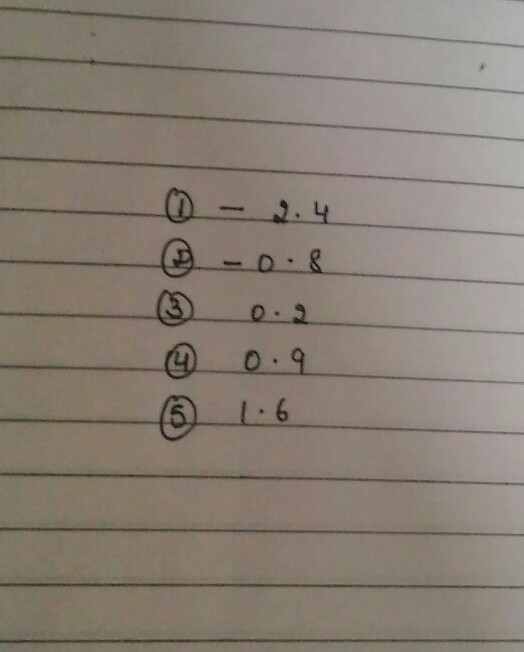 ① - 2.4
② - 0.8
③ 0.2
④ 0.9
⑤ 1.6